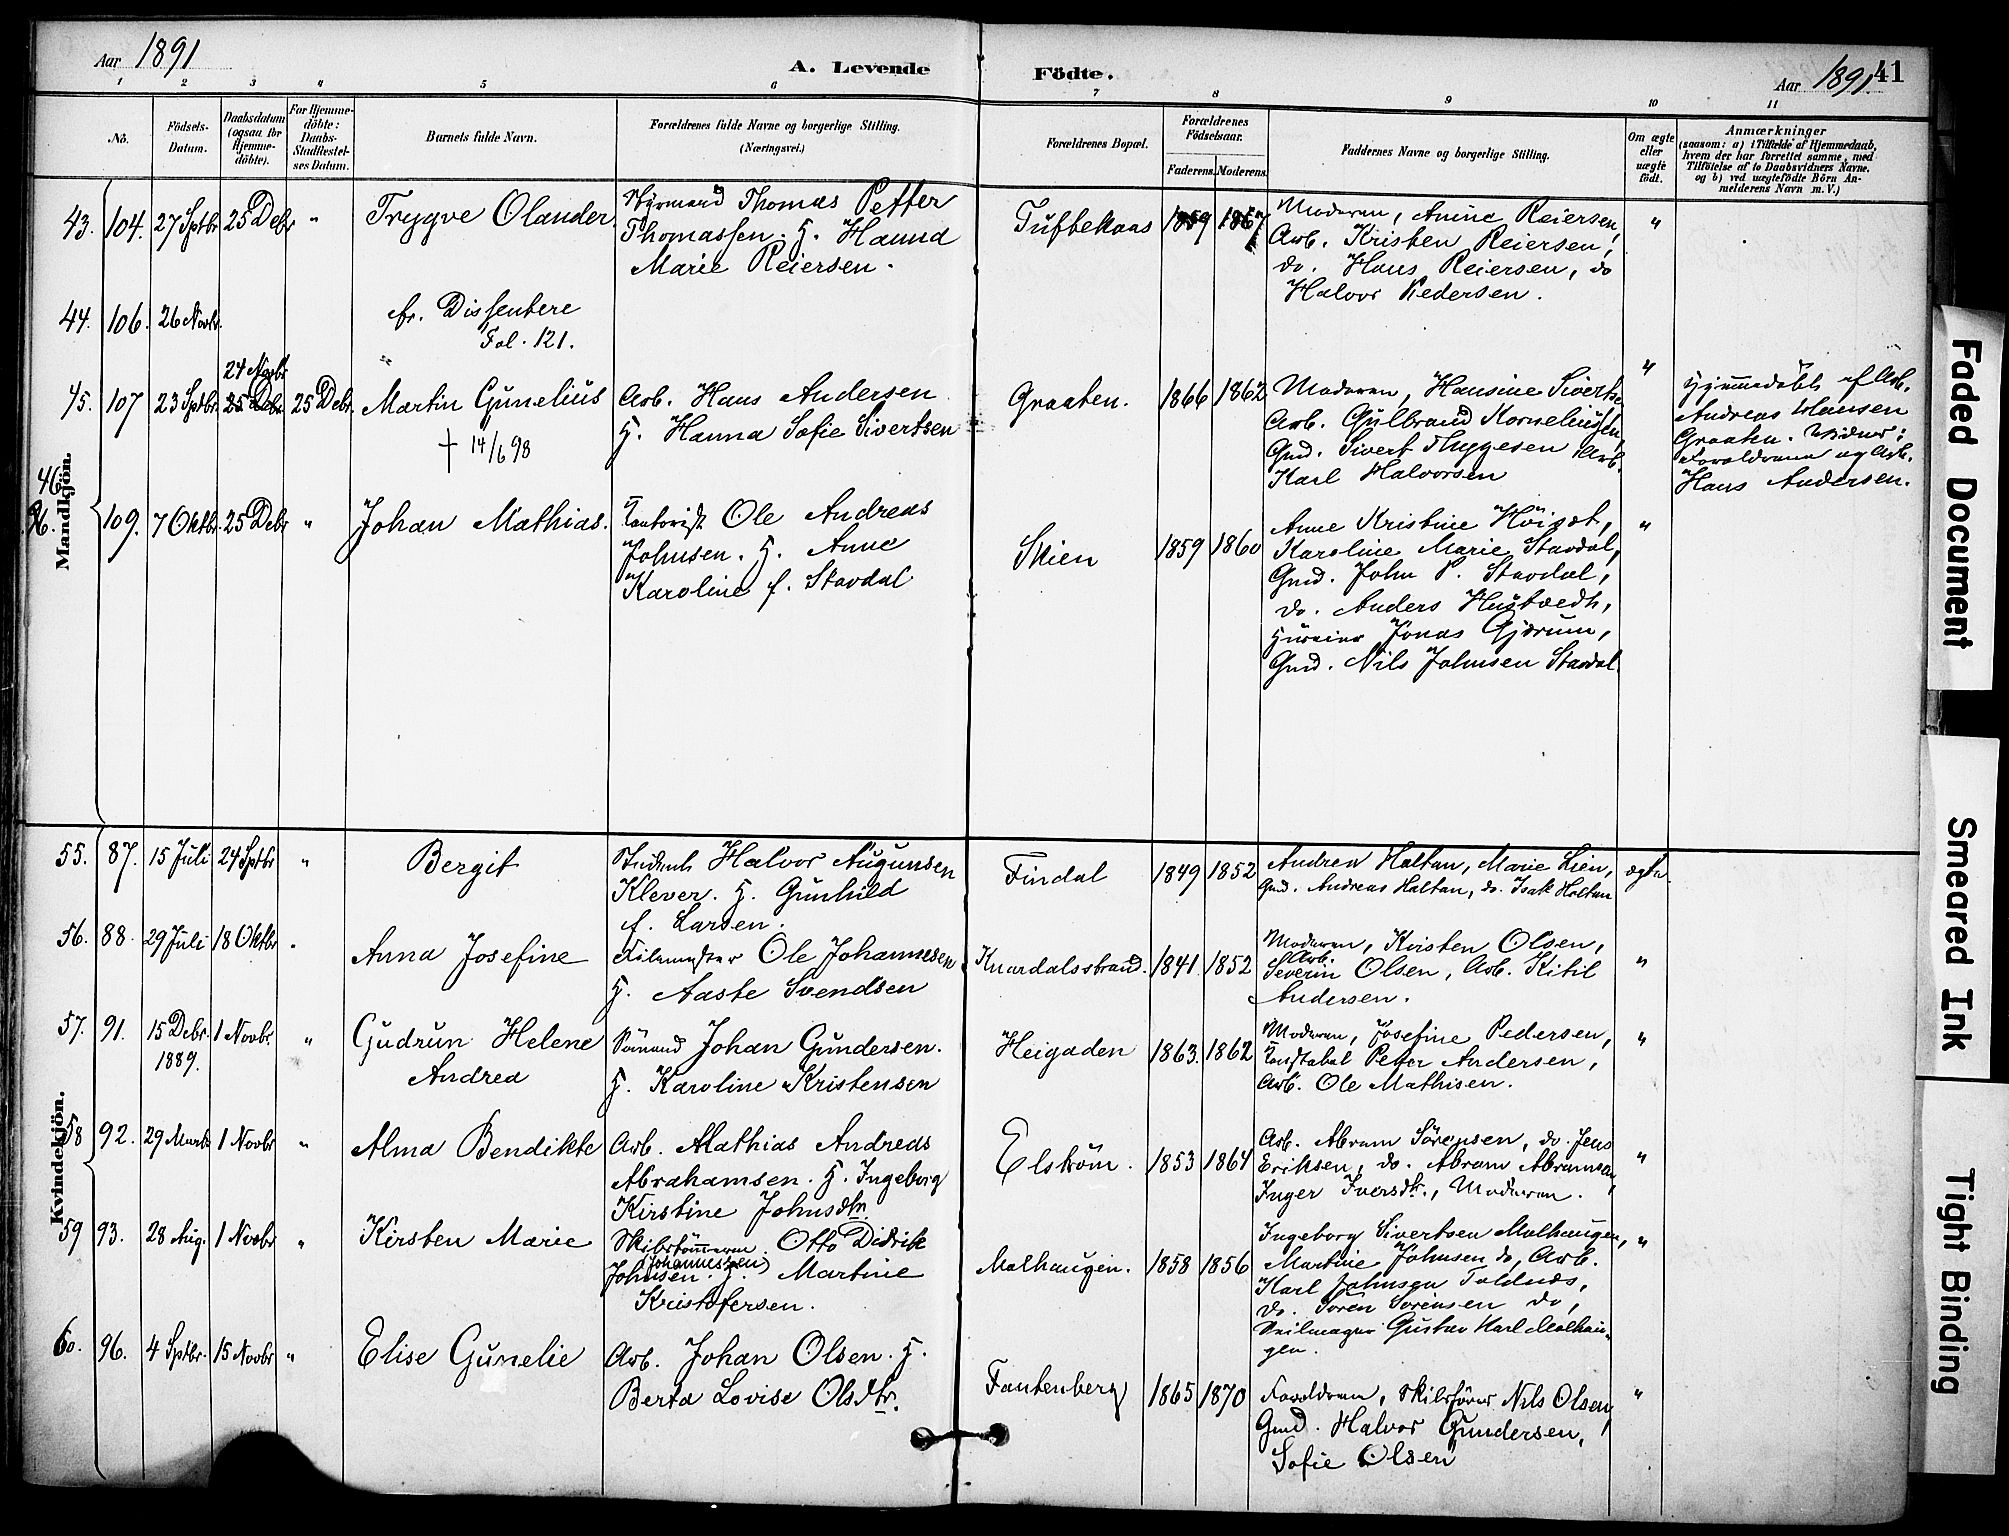 Aar 1891
A. Levende Födte.
Aar 1891. 41
1 2 3 4 5 6 7 8 9 10 11
No. Födsels-Datum. Daabsdatum (ogsaa for Hjemme-döbte). For Hjemme-döbte: Daabs-Stadfæstel-ses Datum. Barnets fulde Navn. Forældrenes fulde Navne og borgerlige Stilling. (Næringsvei.) Forældrenes Bopæl. Forældrenes Födselsaar. Faderens. Moderens. Faddernes Navne og borgerlige Stilling. Om ægte eller uægte födt. Anmærkninger (saasom: a) i Tilfælde af Hjemmedaab, hvem der har forrettet samme, med Tilföielse af to Daabsvidners Navne. og b) ved uægtefödte Börn An-melderens Navn m. V.)
Mandkjön.
43. 104. 27 Sptbr 25 Debr " Trygve Olander. Styrmand Thomas Petter
Thomassen. H. Hanna
Marie Reiersen.
Tuftekaas 1859 1867
Moderen, Anine Reiersen,
Arb. Kristen Reiersen,
do. Hans Reiersen, do
Halvor Pedersen.
"
44. 106. 26 Novbr.
fr. Dissentere
Fol. 121.
45. 107 23 Sptbr. 24 Novbr
25 Debr. 25 Debr. Martin Gunelius
† 14/6 98
Arb. Hans Andersen
H. Hanna Sofie Sivertsen
Graaten. 1866 1862
Moderen, Hansine Sivertse
Arb. Gulbrand Korneliussen,
Gmd. Sivert Thygesen Arb.
Karl Halvorsen
"
Hjemmedöbt af Arb.
Andreas Hansen
Graaten. Vidner:
Forældrene og Arb.
Hans Andersen.
46
46. 109. 7 Oktbr. 25 Debr " Johan Mathias.
Kontorist Ole Andreas
Johnsen. H. Anne
Karoline f. Stavdal
Skien 1859 1860
Anne Kristine Höiset,
Karoline Marie Stavdal,
Gmd. John P. Stavdal,
do. Anders Hustvedt,
Jonas Gjærum,
Gmd. Nils Johnsen Stavdal
"
Kvindekjön.
55. 87. 15 Juli 24 Sptbr " Bergit
Halvor Augunsen
Klever. H. Gunhild
f. Larsen.
Findal 1849 1852
Andrea Haltan, Marie Lien,
Gmd. Andreas Haltan, do. Isak Holtan
ægte.
56. 88. 29 Juli 18 Oktbr " Anna Josefine
Ole Johannesen
H. Aaste Svendsen
Knardalsstrand. 1841. 1852
Moderen, Kristen Olsen,
Arb.
Severin Olsen, Arb. Kitil
Andersen.
"
57. 91. 15 Debr. 1 Novbr. " Gudrun Helene
1889.
Andrea
Sömand Johan Gundersen.
H. Karoline Kristensen
Heigaden 1863. 1862
Moderen, Josefine Pedersen,
Konstabel Peter Andersen,
Arb. Ole Mathisen.
"
58 92. 29 Marts 1 Novbr " Alma Bendikte
Arb. Mathias Andreas
Abrahamsen. H. Ingeborg
Kirstine Johnsdtr.
Elström. 1853 1864
Arb. Abram Sörensen, do. Jens
Eriksen, do. Abram Abramsen,
Inger Iversdtr., Moderen.
"
59 93. 28 Aug. 1 Novbr " Kirsten Marie
Skibstömmerm. Otto Didrik
(Johannessen)
Johnsen. H. Martine
Kristofersen.
Mælhaugen. 1858 1856
Ingeborg Sivertsen Mælhaugen,
Martine Johnsen do, Arb.
Karl Johnsen Foldnæs,
do. Sören Sörensen do,
Seilmager Gustav Karl Mælhau-
gen.
"
60. 96. 4 Sptbr. 15 Novbr " Elise Gunelie
Arb. Johan Olsen. H.
Berta Lovise Olsdtr.
Fantenberg 1865 1870
Forældrene, Skibsförer Nils Olsen,
Gmd. Halvor Gundersen,
Sofie Olsen
"
Faded Document
Smeared Ink
Tight Binding